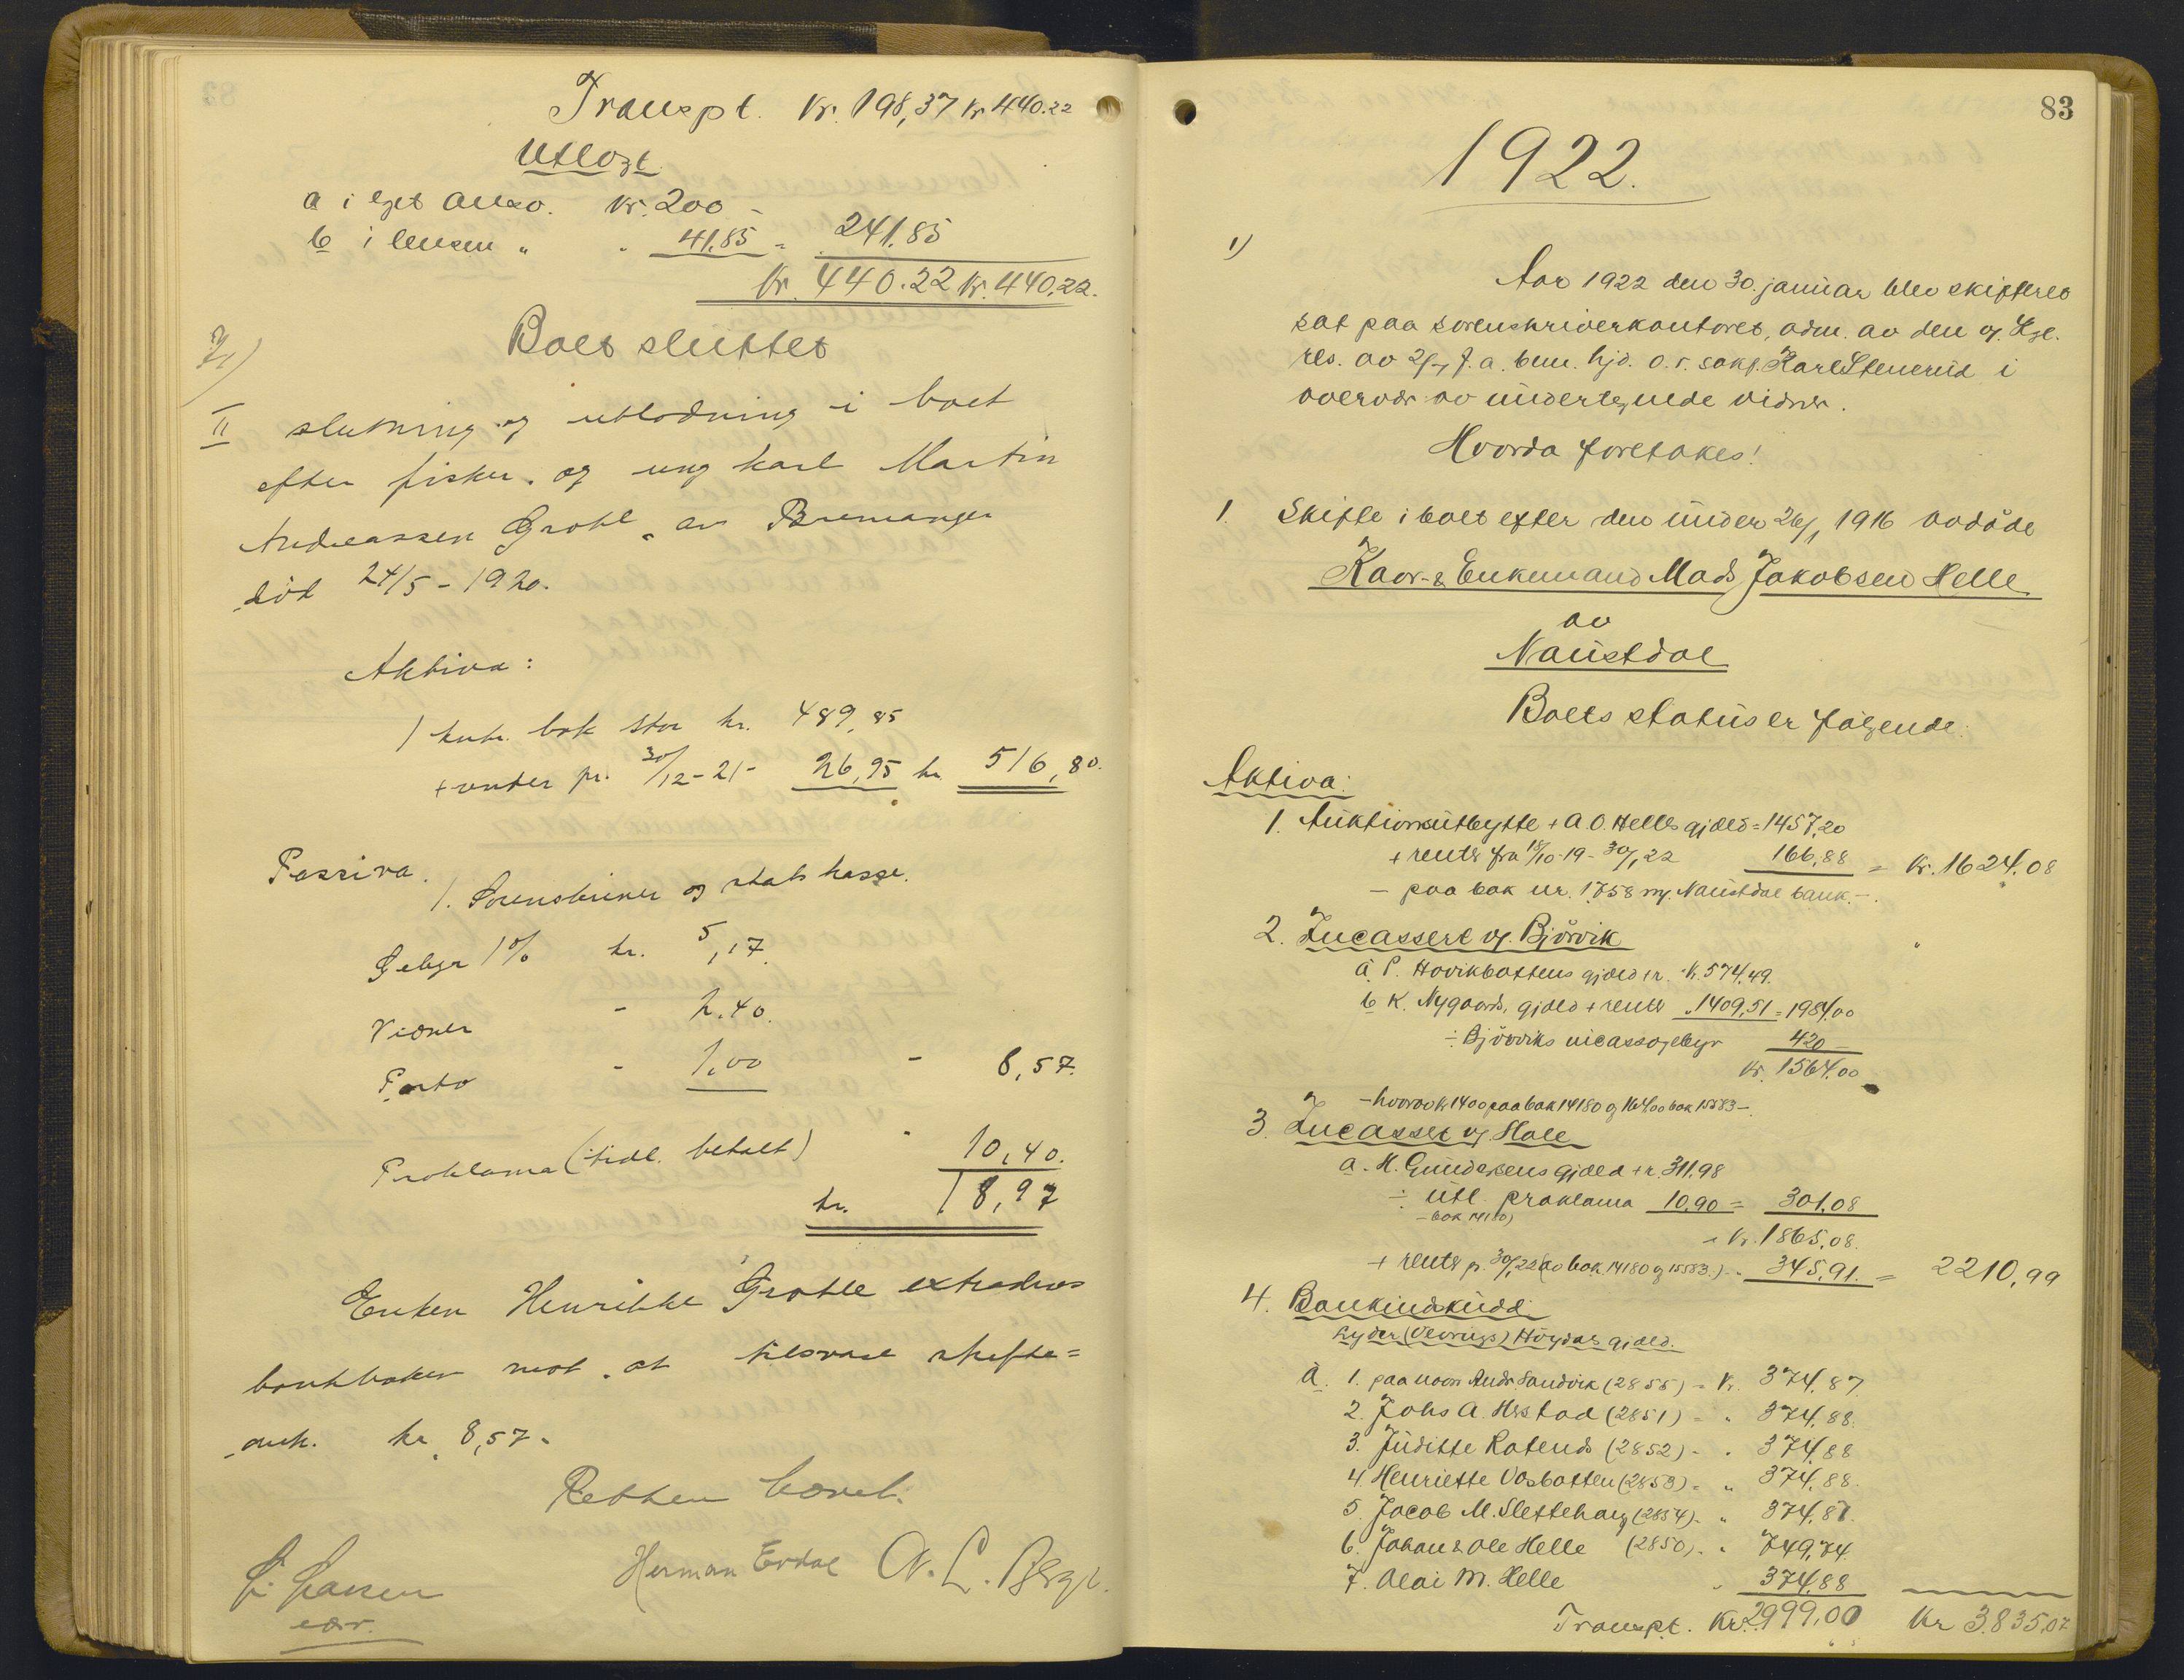 Transpt. Kr. 198,37 Kr 440.22
Utlagt
a i eget Kr. 200 -
b i " " 41.85 = 241.85
Kr. 440.22 Kr. 440.22.
Boet sluttet
II slutning og utlodning i boet
efter fisker og ungkarl Martin
Andreassen Grotle av Bremanger
död 24/5 - 1920.
Aktiva:
1 bok stor kr. 489,85
+ renter pr. 30/12-21 - 26,95 kr. 516,80.
Passiva.
1. Sorenskriver og statskasse.
Gebyr 1% kr. 5,17.
Vidner - 2.40.
Porto - 1,00 - 8,57.
Proklama (tidl. betalt) - 10,40.
kr. 18,97
Enken Henrikke Grotle extraderes
bankboken mot at tilsvare skifte=
omk. kr. 8,57.
Retten hævet.
Herman Erdal
83
1922.
1)
Aar 1922 den 30. januar blev skifteret
sat paa sorenskriverkontoret, adm. av den v. Kgl.
res. av f. a. bem. hjd. o.r. sakf. Karl Stenerud i
overvær av undertegnede vidner.
Hvorda foretokes!
1. Skifte i boet efter den under 26/1 1916 avdöde
Kaar- & Enkemand Mads Jakobsen Helle
av
Naustdal
Boets status er fölgende:
Aktiva:
1. Auktionsutbytte + A.O. Helles gjæld = 1457,20
+ rente fra 18/10-19 - 30/1 22 166,88 = Kr. 1624,08
- paa bok nr. 1758 Naustdal bank. -
2. Incassert v. Björvik
a P. Hovikbottens gjæld + r. Kr. 574,49.
b K. Nygaards gjæld + rente " 1409,51 = 1984,00
÷ Björviks incassogebyr 420 -
Kr. 1564,00
- hvorav kr 1400 paa bok 14180 og 164,00 bok 15583 -
3. Incasset v. Hole
a. M. Gundersens gjæld + r. 311,98
÷ utl. proklama 10,90 = 301,08
- bok 14180)
= Kr. 1865,08.
+ rente p. 30/1 22 (av bok 14180 og 15583.) - 345,91. = 2210,99
4. Bankindskudd:
Höydals gjæld.
a. 1. paa navn Andr. Sandvik (2855) = Kr. 374,87
2. Johs A. Herstad (2851) = " 374,88.
3. Juditte (2852) - " 374,88
4. Henriette Vosbotten (2853) = " 374,88.
5. Jacob M. Slettehaug (2854) - " 374,87.
6. Johan & Ole Helle (2850) - " 749,74.
7. Olai M. Helle " 374,88
Transpt. Kr. 2999,00 Kr 3.835,07